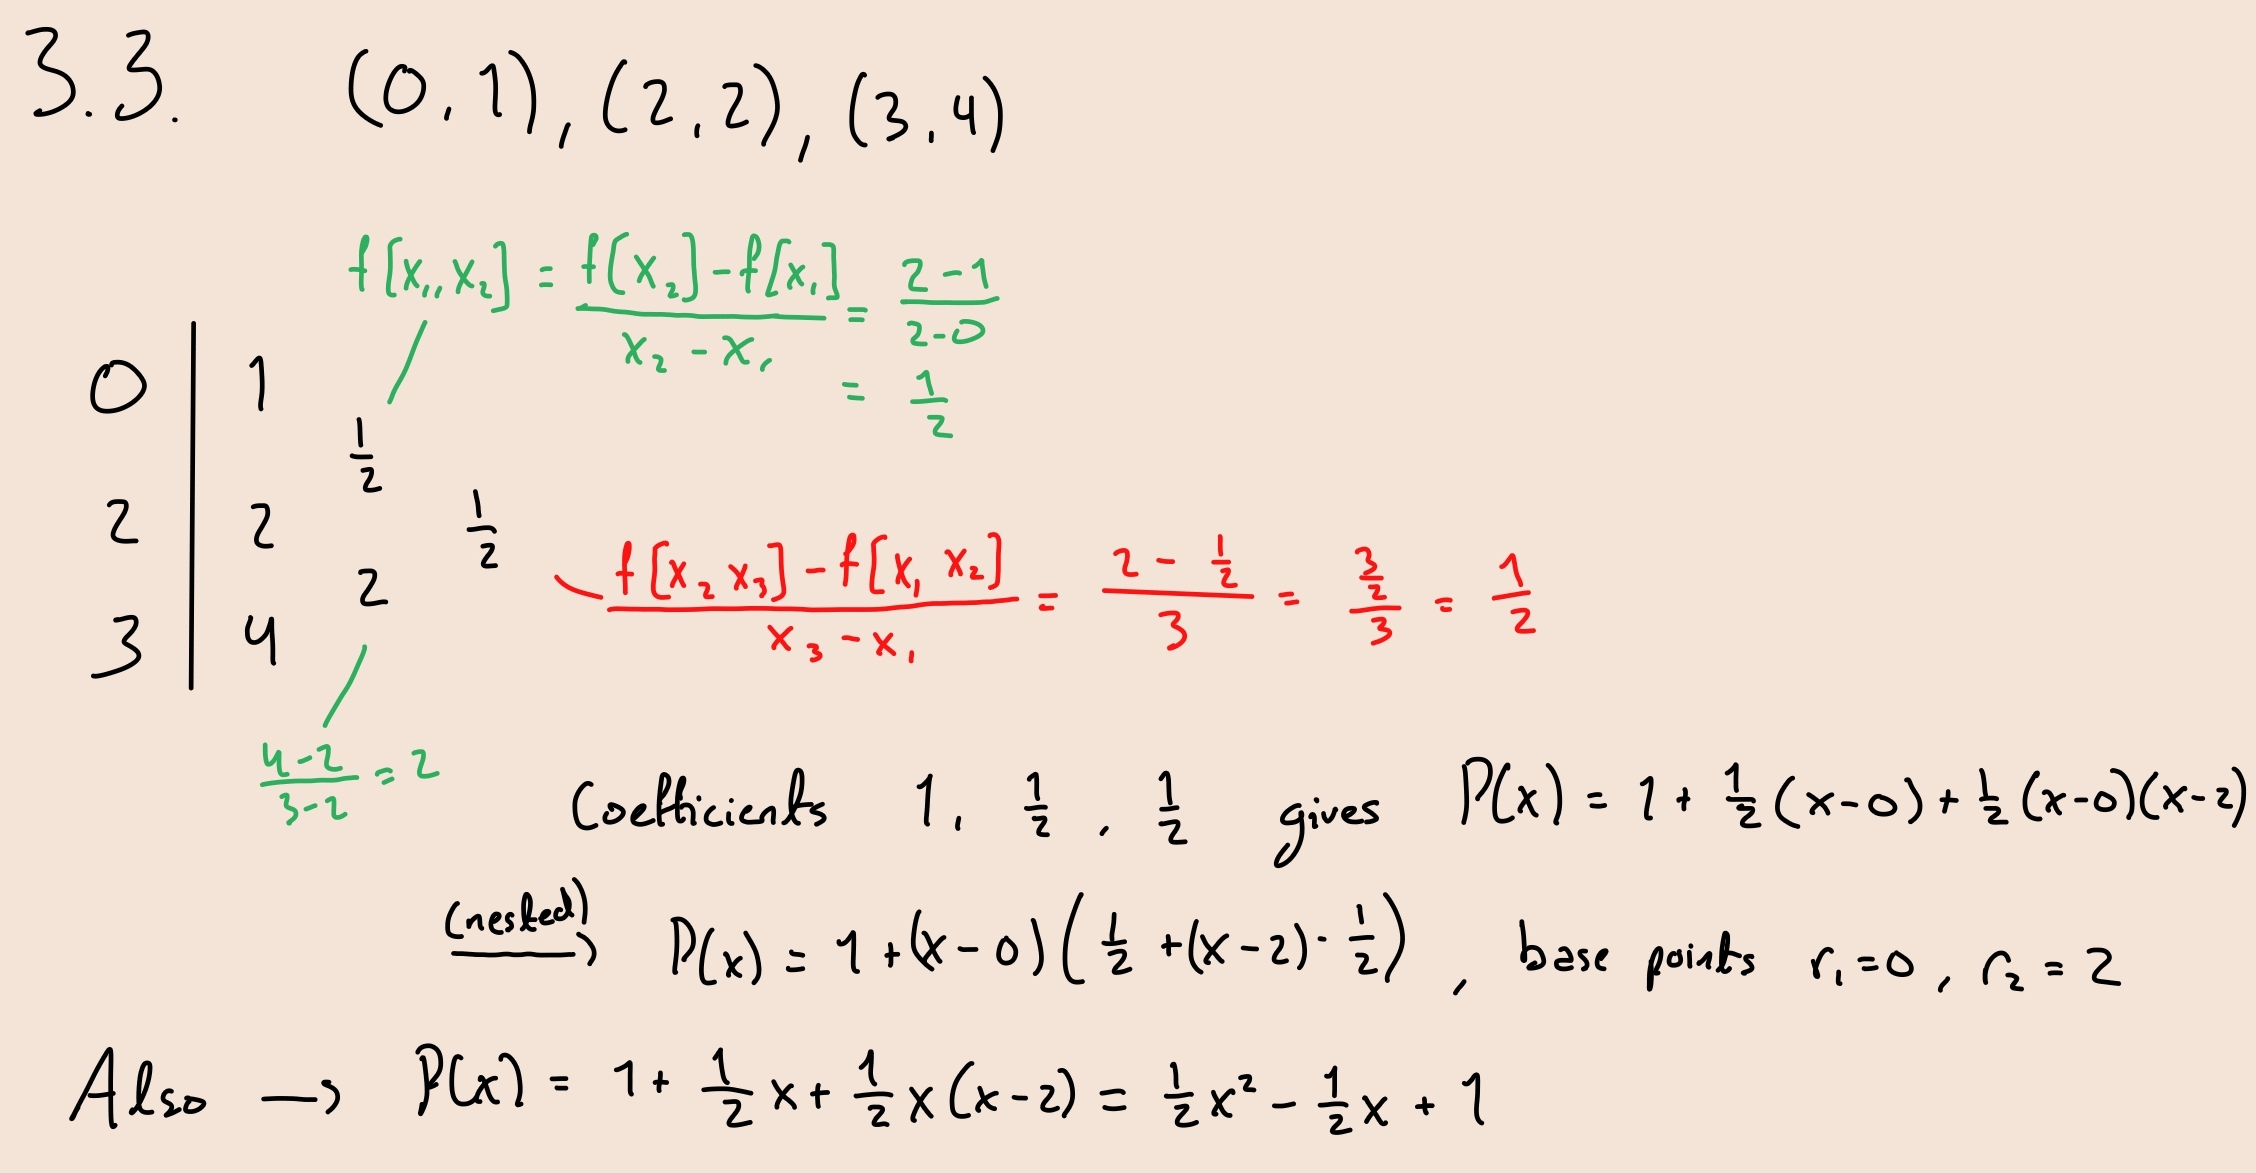 3.3. (0,1), (2,2), (3,4)
f[x₁,x₂] = (f[x₂]-f[x₁])/(x₂-x₁) = (2-1)/(2-0)
= 1/2
0 | 1
1/2
2 | 2
1/2
(f[x₂ x₃]-f[x₁ x₂])/(x₃-x₁) = (2 - 1/2)/3 = (3/2)/3 = 1/2
2
3 | 4
(4-2)/(3-2) = 2
Coefficients 1, 1/2, 1/2 gives P(x) = 1 + 1/2 (x-0) + 1/2 (x-0)(x-2)
(nested) → P(x) = 1 + (x-0)(1/2 + (x-2)·1/2), base points r₁=0, r₂=2
Also → P(x) = 1 + 1/2 x + 1/2 x(x-2) = 1/2 x² - 1/2 x + 1